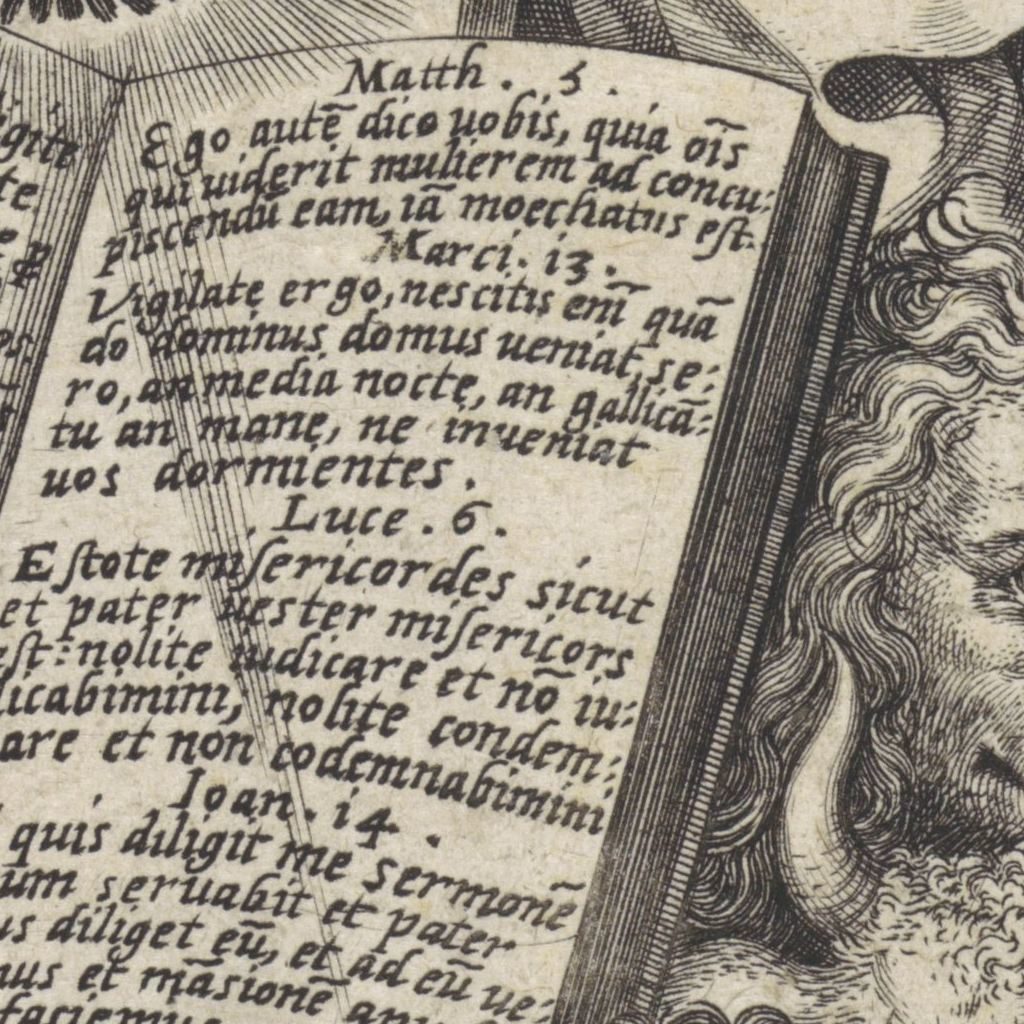 Matth. 5.
Ego autē dico uobis, quia oīs
qui uiderit mulierem ad concu:
piscendū eam, iā moechatus eſt.
Marci. 13.
Vigilate ergo, nescitis enī quā
do dominus domus ueniat, se:
ro, an media nocte, an gallicā:
tu an mane, ne inueniat
uos dormientes.
Luce. 6.
Eſtote miſericordes sicut
et pater uester miſericors
eſt: nolite iudicare et nō iu:
dicabimini, nolite condem:
are et non codemnabimini
Ioan. 14.
quis diligit me sermonē
um seruabit et pater
us diliget eū, et ad eū ue:
nus et māsionē
faciemus